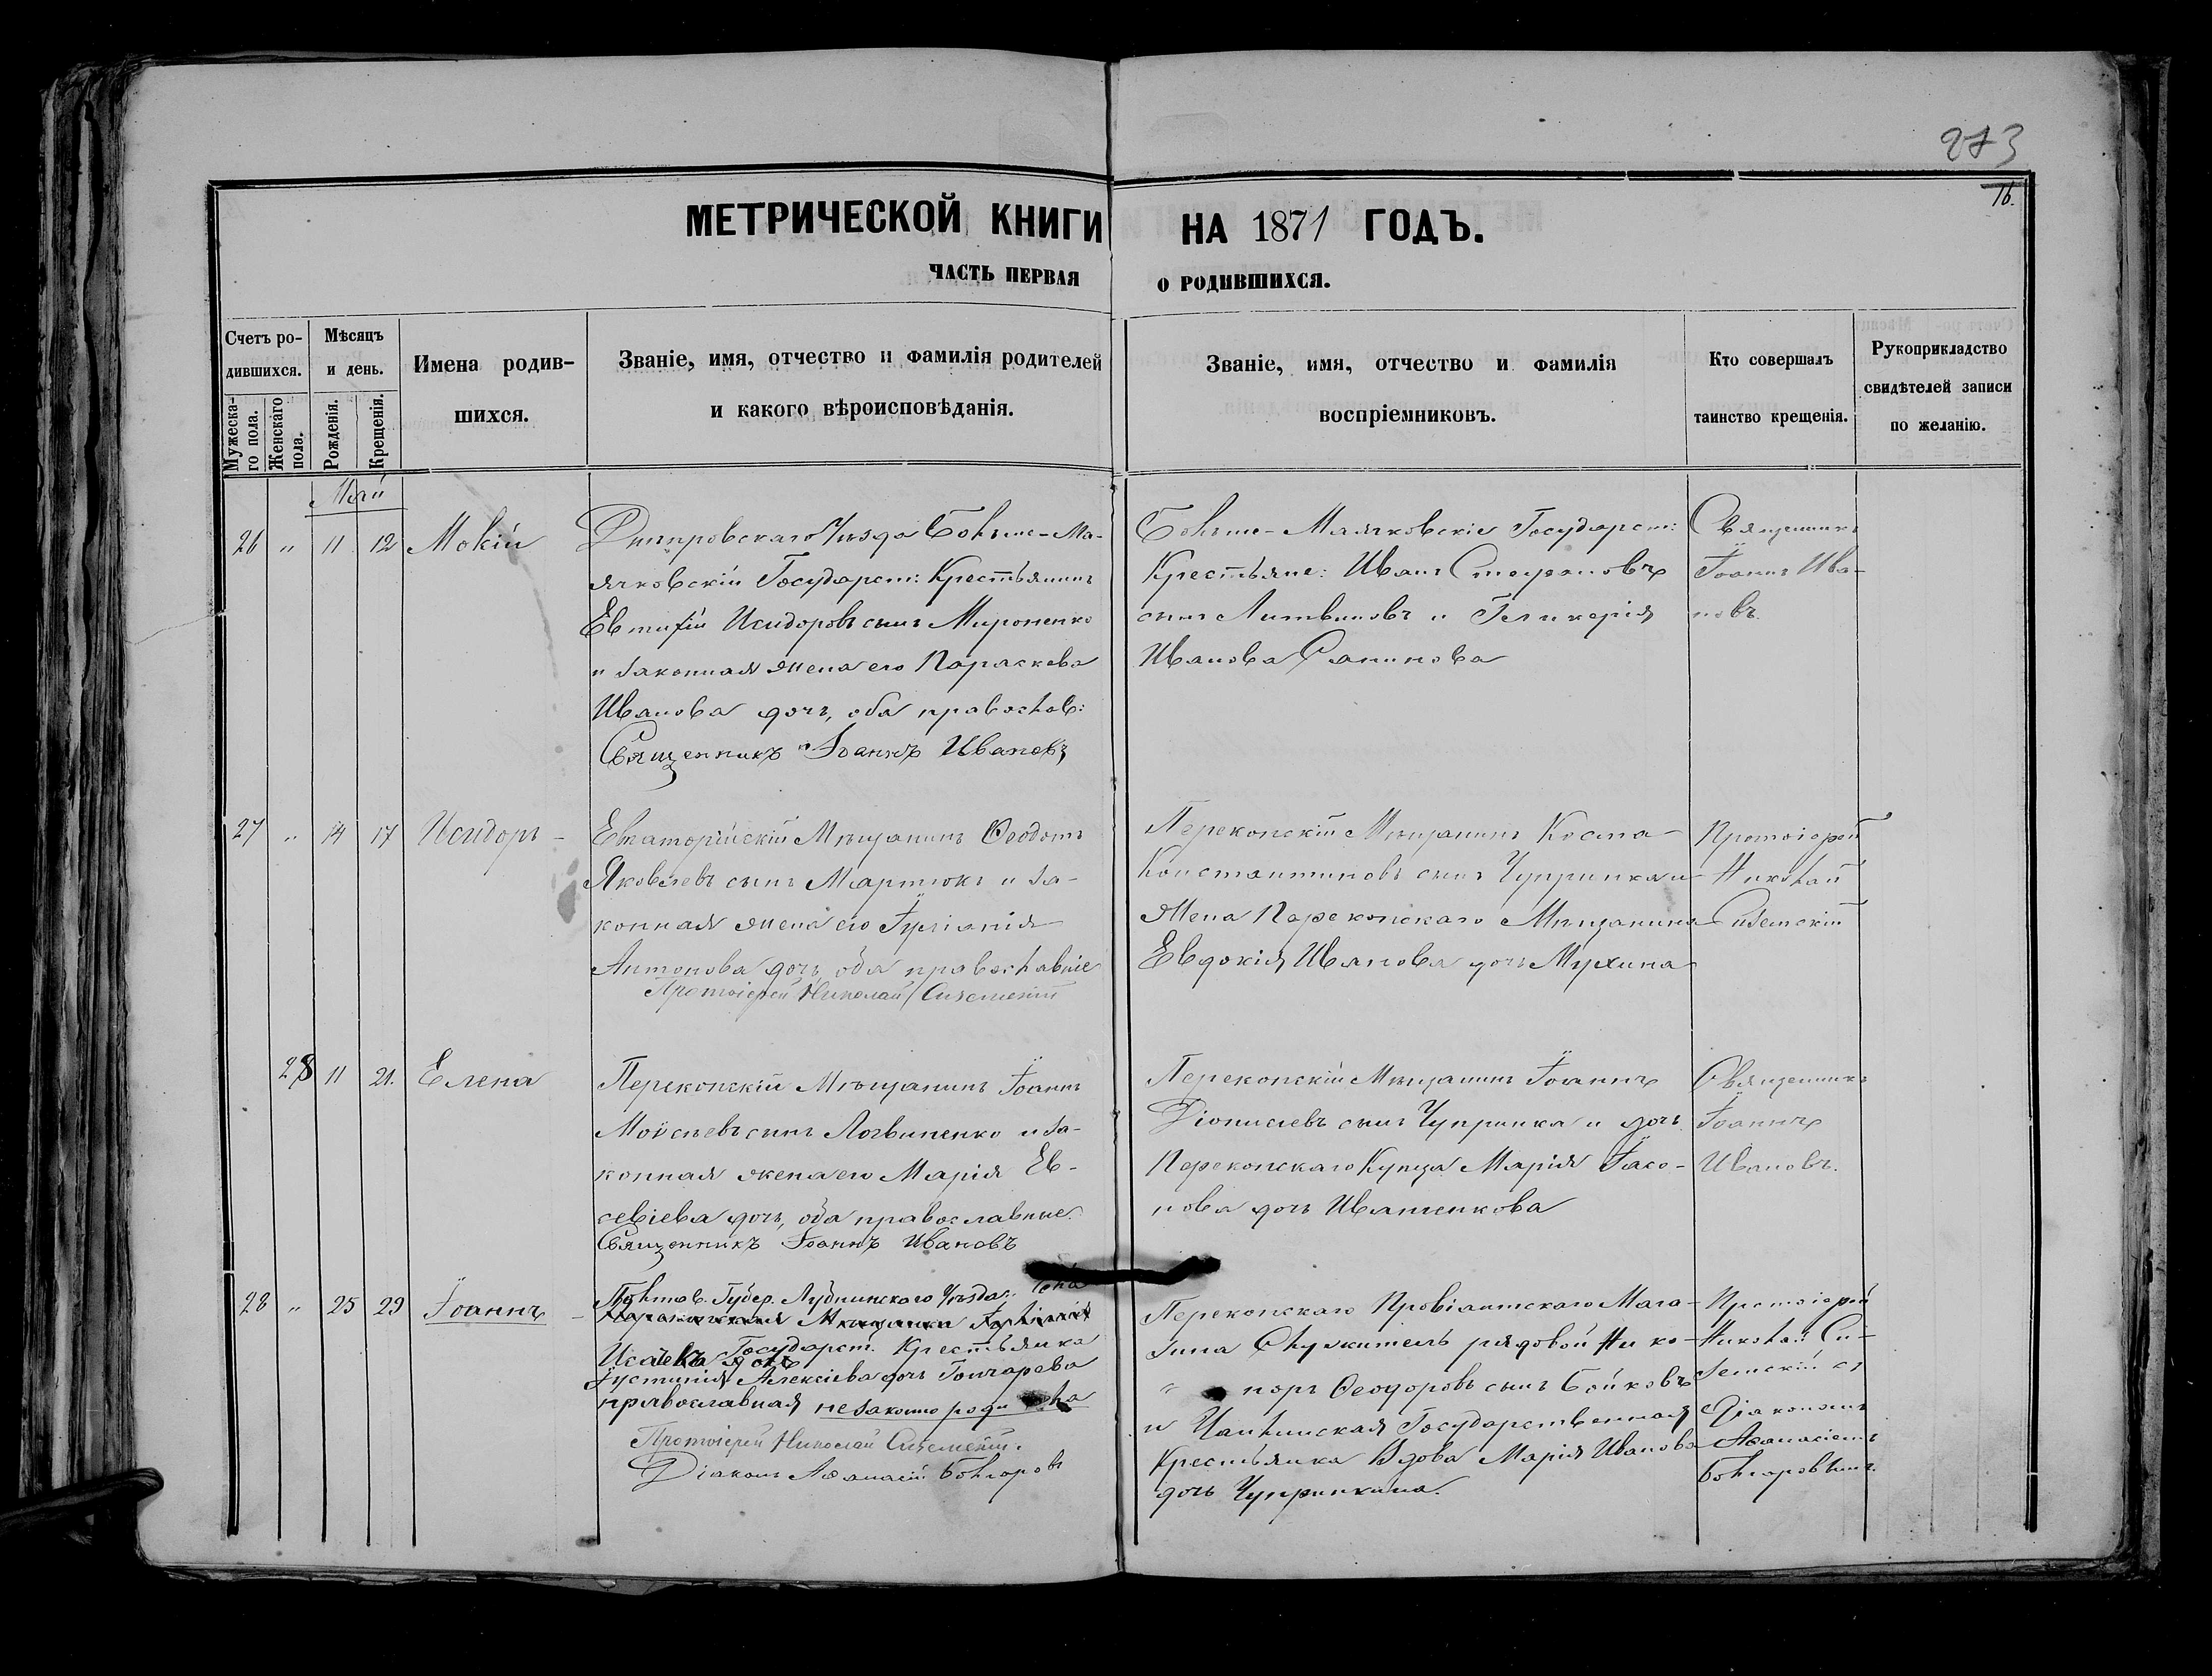 273
16.
МЕТРИЧЕСКОЙ КНИГИ НА 1871 ГОДЪ.
ЧАСТЬ ПЕРВАЯ О РОДИВШИХСЯ.
Счетъ ро-
дившихся.
Мужеска-
го пола.
Женскаго
пола.
Мѣсяцъ
и день.
Рожденія.
Крещенія.
Имена родив-
шихся.
Званіе, имя, отчество и фамилія родителей
и какого вѣроисповѣданія.
Званіе, имя, отчество и фамилія
воспріемниковъ.
Кто совершалъ
таинство крещенія.
Рукоприкладство
свидѣтелей записи
по желанію.
Май
26 " 11 12 Мокій
Днѣпровскаго Уѣзда Больше-Ма-
ячковскій Государст: Крестьянинъ
Евтихій Исидоровъ сынъ Мироненко
и законная жена его Параскева
Иванова дочь, оба православ:
Священникъ Іоаннъ Ивановъ
Больше-Маячковскіе Государст:
Крестьяне: Иванъ Стефановъ
сынъ Литвиновъ и Гликерія
Иванова
Священникъ
Іоаннъ Ива-
новъ.
27 " 14 17 Исидоръ
Евпаторійскій Мѣщанинъ Ѳеодотъ
Яковлевъ сынъ Мартюкъ и за-
конная жена его Іуліанія
Антонова дочь, оба православніе
Протоіерей Николай Сиземскій
Перекопскій Мѣщанинъ Косма
Константиновъ сынъ Чупринка и
жена Перекопскаго Мѣщанина
Евдокія Иванова дочь Мухина
Протоіерей
Николай
Сиземскій
28 11 21. Елена
Перекопскій Мѣщанинъ Іоаннъ
Моѵсѣевъ сынъ Логвиненко и за-
конная жена его Марія Ев-
севіева дочь, оба православные.
Священникъ Іоаннъ Ивановъ
Перекопскій Мѣщанинъ Іоаннъ
Діонисіевъ сынъ Чупринка и дочь
Перекопскаго Купца Марія Іасо-
нова дочь Иватенкова
Священникъ
Іоаннъ
Ивановъ.
28 " 25 29 Іоаннъ
Полтав. Губер. Лубнинскаго Уѣзда
Перекопская Мѣщанка Іуліанія
Исаева дочь Государст. Крестьянка
Іустинія Алексіева дочь Гончарева
православная незаконно родила
Протоіерей Николай Сиземскій.
Діаконъ Аѳанасій Болгаровъ
Перекопскаго Провіантскаго Мага-
зина Служитель рядовой Ника-
норъ Ѳеодоровъ сынъ Бойковъ
и Чаплинская Государственная
Крестьянка Вдова Марія Иванова
дочь Чупринкина.
Протоіерей
Николай Си-
земскій съ
Діакономъ
Аѳанасіемъ
Болгаровымъ.